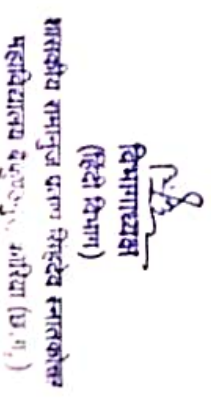 विभागाध्यक्ष
(हिंदी विभाग)
शासकीय रामानुज प्रताप सिंहदेव स्नातकोत्तर
महाविद्यालय कोरिया (छ.ग.)